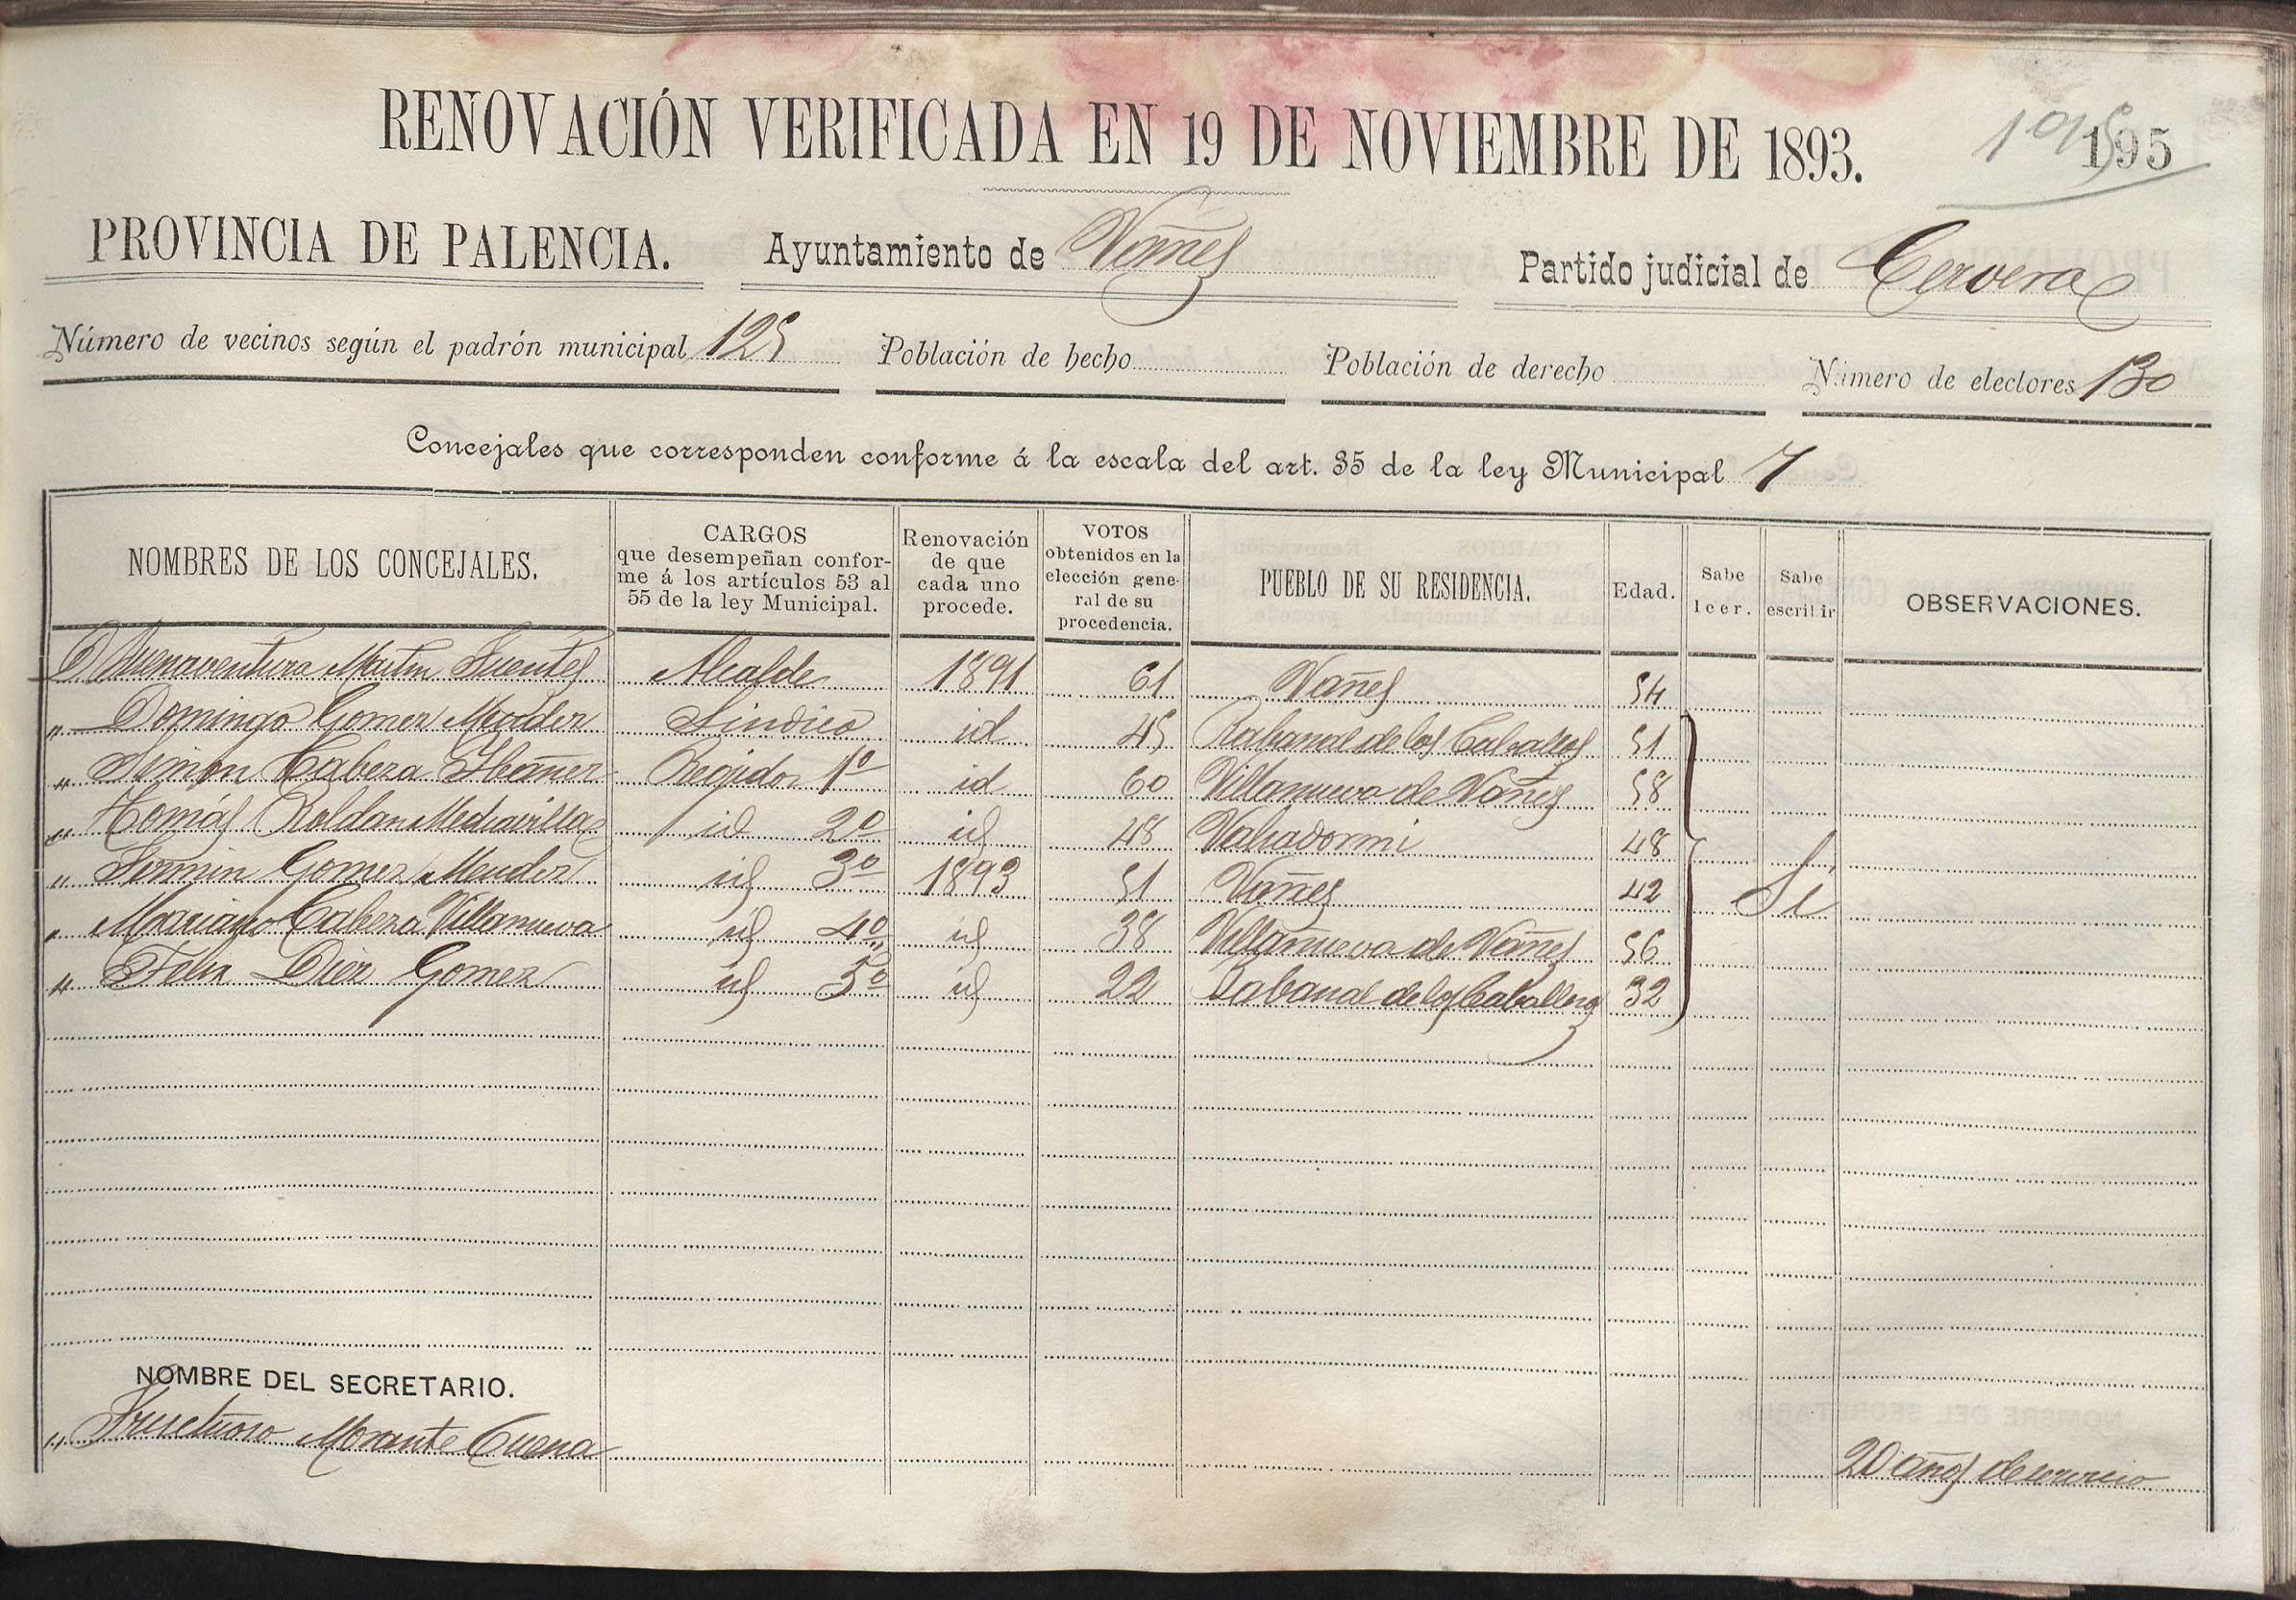 RENOVACIÓN VERIFICADA EN 19 DE NOVIEMBRE DE 1893.
195 195
PROVINCIA DE PALENCIA. Ayuntamiento de Vañes Partido judicial de Cervera
Número de vecinos según el padrón municipal 125 Población de hecho Población de derecho Número de electores 130
Concejales que corresponden conforme á la escala del art. 35 de la ley Municipal 7
NOMBRES DE LOS CONCEJALES. CARGOS que desempeñan confor-me á los artículos 53 al 55 de la ley Municipal. Renovación de que cada uno procede. VOTOS obtenidos en la elección gene-ral de su procedencia. PUEBLO DE SU RESIDENCIA. Edad. Sabe leer. Sabe escribir OBSERVACIONES.
D Buenaventura Martin Fuentes Alcalde 1891 61 Vañes 54
„ Domingo Gomez Mender Sindico id 45 Rabanal de los Caballos 51
„ Simon Cabeza Ibañez Regidor 1º id 60 Villanueva de Vañes 58
„ Tomás Roldan Mediavilla id 2º id 48 Valsadormi 48
„ Fermin Gomez Mender id 3º 1893 51 Vañes 42 Si
„ Mariano Cabeza Villanueva id 4º id 38 Villanueva de Vañes 56
„ Felix Diez Gomez id 5º id 22 Rabanal de los Caballeros 32
NOMBRE DEL SECRETARIO.
„ Fructuoso Morante Cuena 20 años de servicio